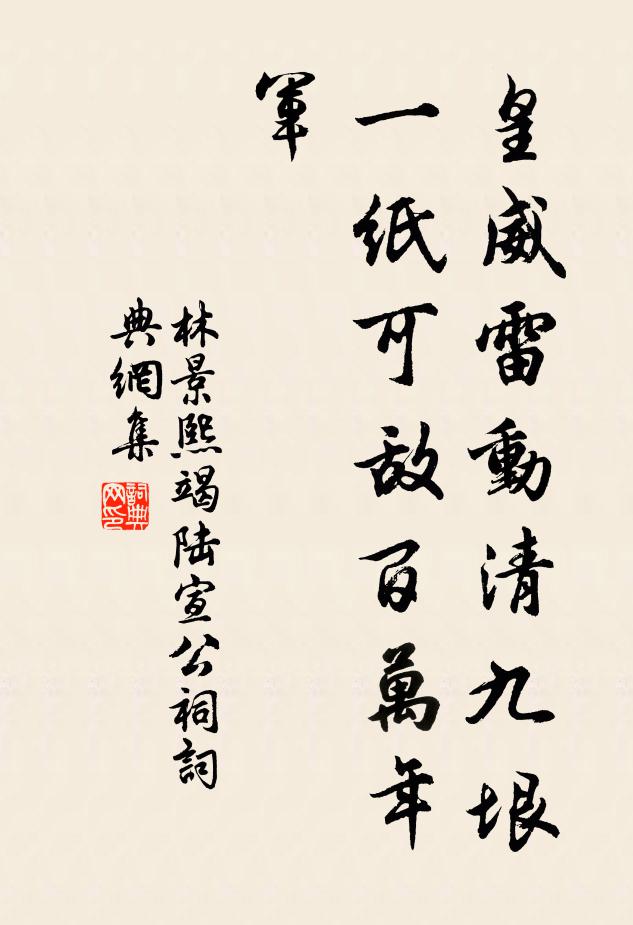 皇威雷動清九垠
一紙可敌百萬年
軍
林景熙謁陆宣公祠詞
典網集
詞典网印